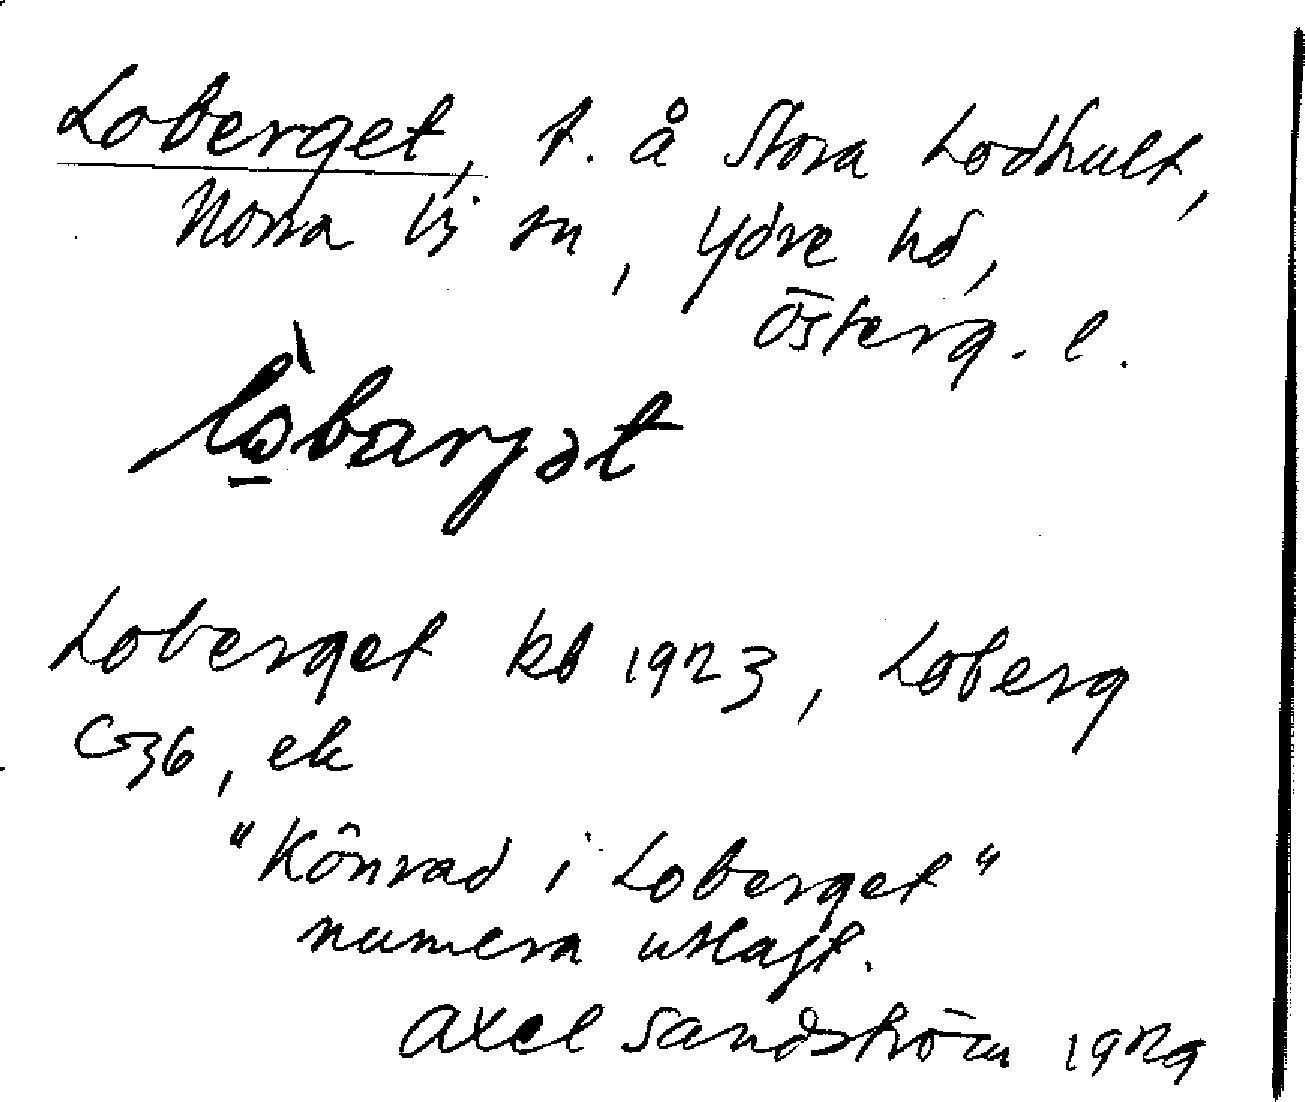 Loberget, t. å Stora Lodhult,
Norra Vi sn, Ydre hd,
Österg. l.
Loberget kb 1923, Loberg
G36, ek
"Kônrad i Loberget"
numera utlagt.
Axel Sandström 1929